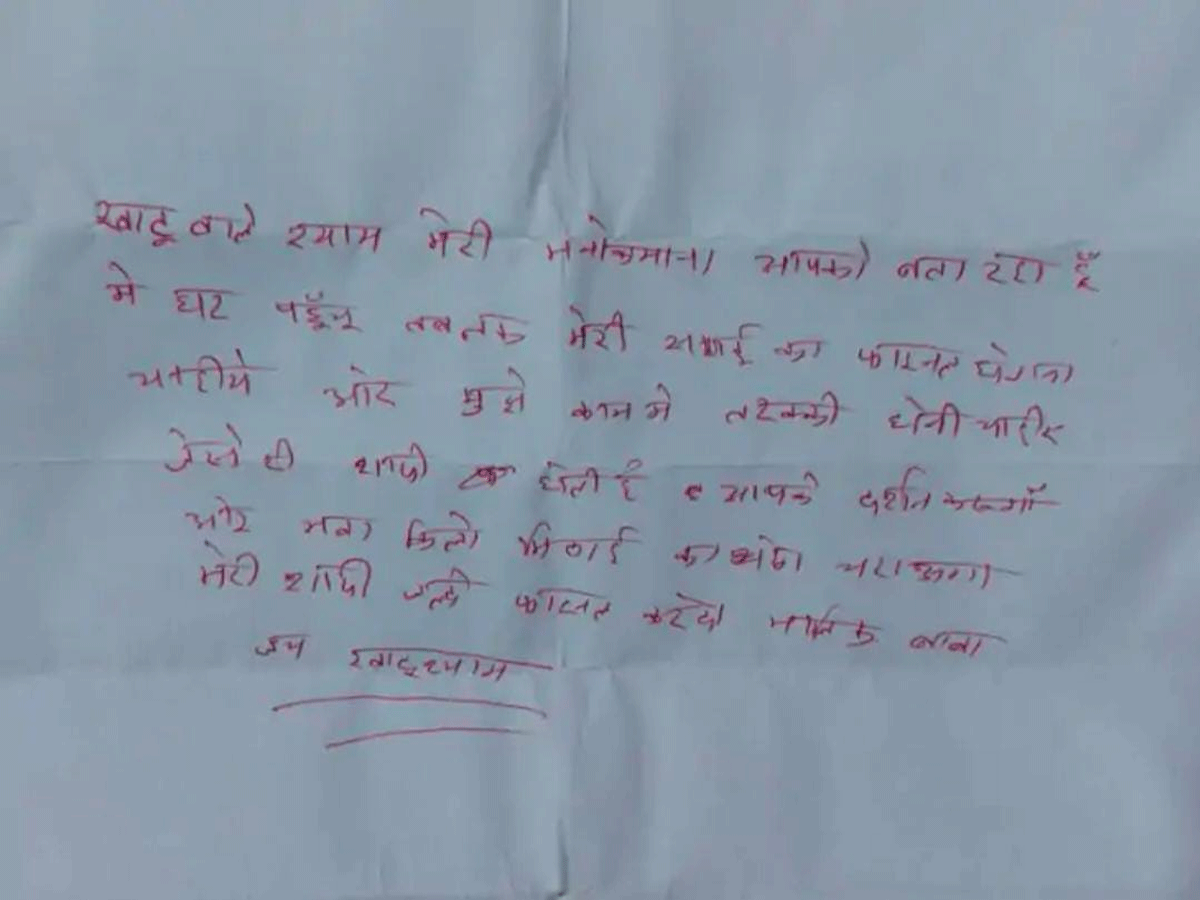 खाटू वाले श्याम मेरी मनोकमाना आपको बता रहा हूँ
मे घर पहूँचू तब तक मेरी सगाई का फाइनल होना
चाहीये ओर मुझे काम मे तरक्की होनी चाहीए
जेसे ही शादी होती है आपके दर्शन करूगाँ
ओर सवा किलो मिठाई का चढाऊगा
मेरी शादी जल्दी फाइनल करदो मालिक बाबा
जय खाटूश्याम